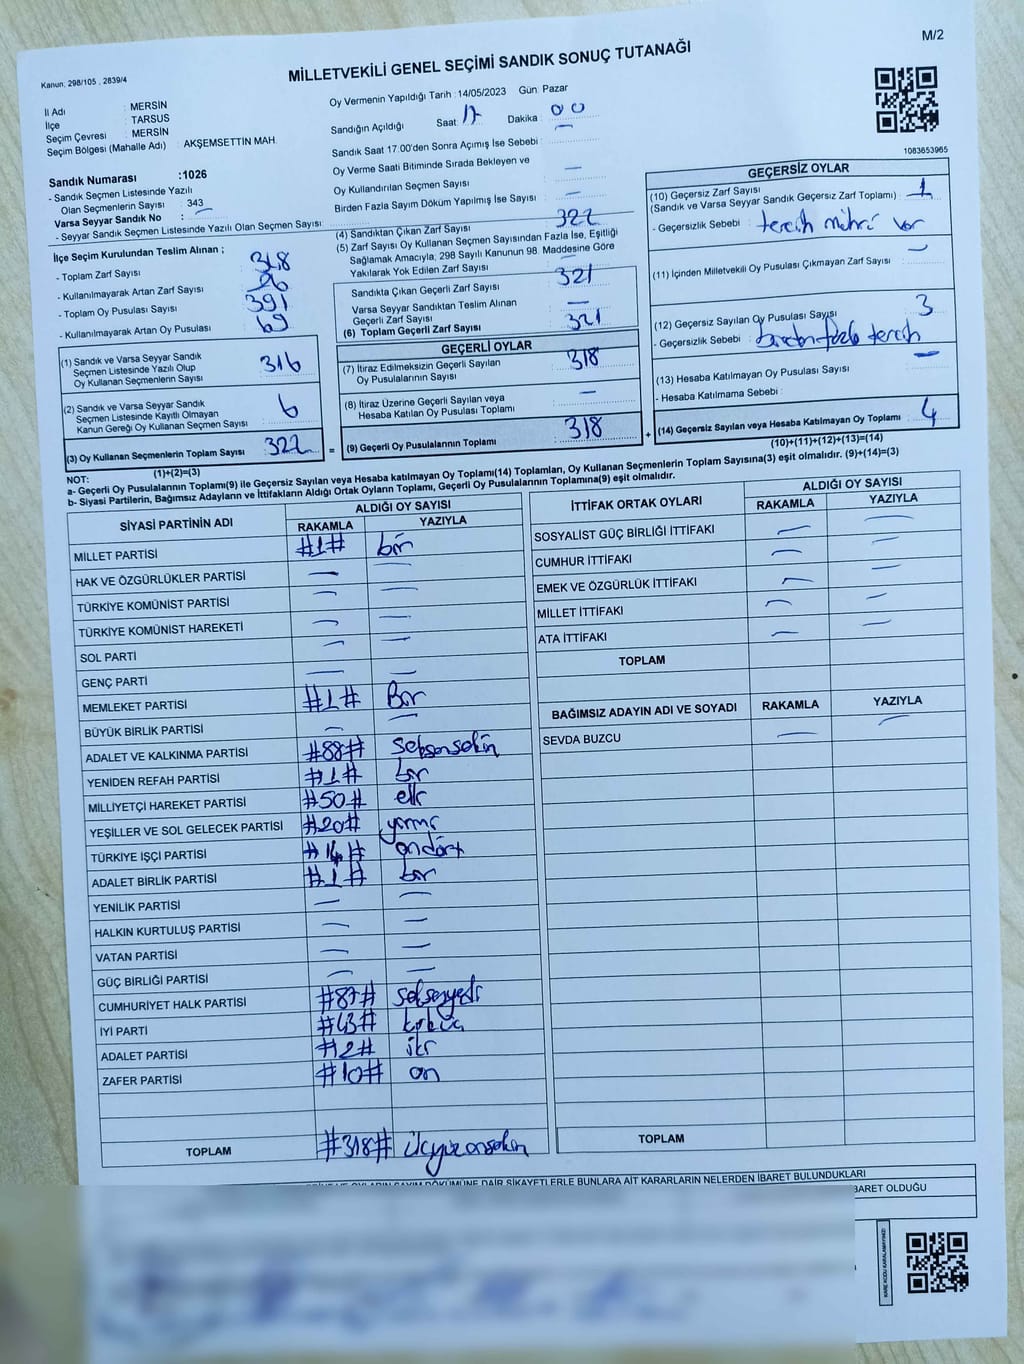 M/2
Kanun, 298/105 , 2839/4
MİLLETVEKİLİ GENEL SEÇİMİ SANDIK SONUÇ TUTANAĞI
İl Adı : MERSİN
İlçe TARSUS
Seçim Çevresi : MERSİN
Seçim Bölgesi (Mahalle Adı) : AKŞEMSETTİN MAH.
Oy Vermenin Yapıldığı Tarih :14/05/2023 Gün: Pazar
Sandığın Açıldığı Saat 17 Dakika : 00
Sandık Saat 17.00'den Sonra Açımış İse Sebebi :
Oy Verme Saati Bitiminde Sırada Bekleyen ve
Oy Kullandırılan Seçmen Sayısı : —
Birden Fazla Sayım Döküm Yapılmış İse Sayısı : —
1083653965
Sandık Numarası :1026
- Sandık Seçmen Listesinde Yazılı
Olan Seçmenlerin Sayısı : 343
Varsa Seyyar Sandık No : —
- Seyyar Sandık Seçmen Listesinde Yazılı Olan Seçmen Sayısı:
İlçe Seçim Kurulundan Teslim Alınan ;
- Toplam Zarf Sayısı : 348
- Kullanılmayarak Artan Zarf Sayısı : 26
- Toplam Oy Pusulası Sayısı : 391
- Kullanılmayarak Artan Oy Pusulası : 69
(1) Sandık ve Varsa Seyyar Sandık
Seçmen Listesinde Yazılı Olup
Oy Kullanan Seçmenlerin Sayısı : 316
(2) Sandık ve Varsa Seyyar Sandık
Seçmen Listesinde Kayıtlı Olmayan
Kanun Gereği Oy Kullanan Seçmen Sayısı : 6
(3) Oy Kullanan Seçmenlerin Toplam Sayısı : 322
(1)+(2)=(3)
(4) Sandıktan Çıkan Zarf Sayısı : 322
(5) Zarf Sayısı Oy Kullanan Seçmen Sayısından Fazla İse, Eşitliği
Sağlamak Amacıyla; 298 Sayılı Kanunun 98. Maddesine Göre
Yakılarak Yok Edilen Zarf Sayısı : —
Sandıkta Çıkan Geçerli Zarf Sayısı : 321
Varsa Seyyar Sandıktan Teslim Alınan
Geçerli Zarf Sayısı : —
(6) Toplam Geçerli Zarf Sayısı : 321
GEÇERLİ OYLAR
(7) İtiraz Edilmeksizin Geçerli Sayılan
Oy Pusulalarının Sayısı : 318
(8) İtiraz Üzerine Geçerli Sayılan veya
Hesaba Katılan Oy Pusulası Toplamı : —
(9) Geçerli Oy Pusulalarının Toplamı : 318
GEÇERSİZ OYLAR
(10) Geçersiz Zarf Sayısı : 1
(Sandık ve Varsa Seyyar Sandık Geçersiz Zarf Toplamı)
- Geçersizlik Sebebi : tercih mührü var
(11) İçinden Milletvekili Oy Pusulası Çıkmayan Zarf Sayısı : —
(12) Geçersiz Sayılan Oy Pusulası Sayısı : 3
- Geçersizlik Sebebi : birden fazla tercih
(13) Hesaba Katılmayan Oy Pusulası Sayısı : —
- Hesaba Katılmama Sebebi :
(14) Geçersiz Sayılan veya Hesaba Katılmayan Oy Toplamı : 4
(10)+(11)+(12)+(13)=(14)
NOT:
a- Geçerli Oy Pusulalarının Toplamı(9) ile Geçersiz Sayılan veya Hesaba katılmayan Oy Toplamı(14) Toplamları, Oy Kullanan Seçmenlerin Toplam Sayısına(3) eşit olmalıdır. (9)+(14)=(3)
b- Siyasi Partilerin, Bağımsız Adayların ve İttifakların Aldığı Ortak Oyların Toplamı, Geçerli Oy Pusulalarının Toplamına(9) eşit olmalıdır.
SİYASİ PARTİNİN ADI ALDIĞI OY SAYISI
RAKAMLA YAZIYLA
MİLLET PARTİSİ #1# bir
HAK VE ÖZGÜRLÜKLER PARTİSİ — —
TÜRKİYE KOMÜNİST PARTİSİ — —
TÜRKİYE KOMÜNİST HAREKETİ — —
SOL PARTİ — —
GENÇ PARTİ — —
MEMLEKET PARTİSİ #1# Bir
BÜYÜK BİRLİK PARTİSİ — —
ADALET VE KALKINMA PARTİSİ #88# seksensekiz
YENİDEN REFAH PARTİSİ #1# bir
MİLLİYETÇİ HAREKET PARTİSİ #50# elli
YEŞİLLER VE SOL GELECEK PARTİSİ #20# yirmi
TÜRKİYE İŞÇİ PARTİSİ #14# ondört
ADALET BİRLİK PARTİSİ #1# bir
YENİLİK PARTİSİ — —
HALKIN KURTULUŞ PARTİSİ — —
VATAN PARTİSİ — —
GÜÇ BİRLİĞİ PARTİSİ — —
CUMHURİYET HALK PARTİSİ #87# seksenyedi
İYİ PARTİ #43# kırküç
ADALET PARTİSİ #2# iki
ZAFER PARTİSİ #10# on
TOPLAM #318# üçyüzonsekiz
İTTİFAK ORTAK OYLARI ALDIĞI OY SAYISI
RAKAMLA YAZIYLA
SOSYALİST GÜÇ BİRLİĞİ İTTİFAKI — —
CUMHUR İTTİFAKI — —
EMEK VE ÖZGÜRLÜK İTTİFAKI — —
MİLLET İTTİFAKI — —
ATA İTTİFAKI — —
TOPLAM
BAĞIMSIZ ADAYIN ADI VE SOYADI RAKAMLA YAZIYLA
SEVDA BUZCU — —
TOPLAM
DÖKÜMÜNE DAİR ŞİKAYETLERLE BUNLARA AİT KARARLARIN NELERDEN İBARET BULUNDUKLARI
BARET OLDUĞU
KARE KODU KARALAMAYINIZ!